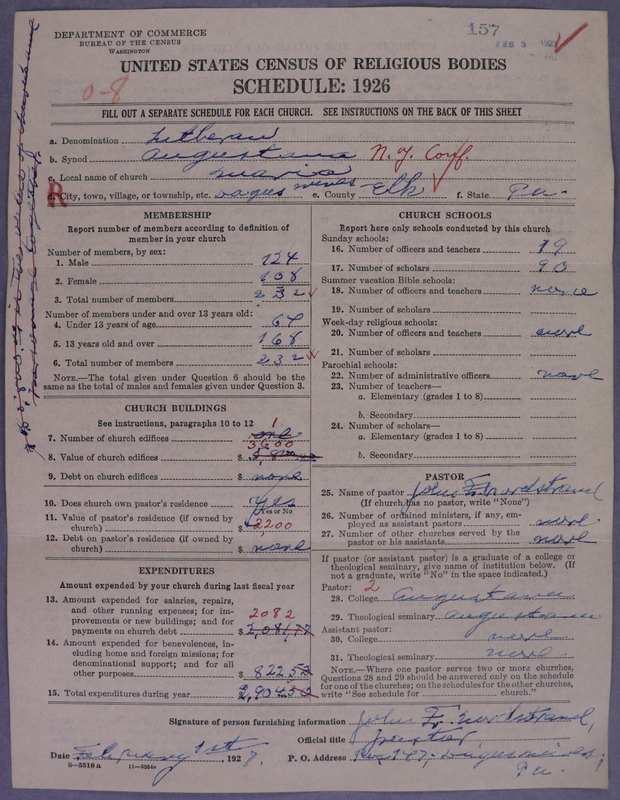 157
FEB 3 1927
DEPARTMENT OF COMMERCE
BUREAU OF THE CENSUS
WASHINGTON
UNITED STATES CENSUS OF RELIGIOUS BODIES
SCHEDULE: 1926
0-8
FILL OUT A SEPARATE SCHEDULE FOR EACH CHURCH. SEE INSTRUCTIONS ON THE BACK OF THIS SHEET
a. Denomination Lutheran
b. Synod Augustana N.Y. Conf.
c. Local name of church Maria
R
d. City, town, village, or township, etc. Dagus Mines e. County Elk f. State Pa.
MEMBERSHIP
Report number of members according to definition of
member in your church
Number of members, by sex:
1. Male 124
2. Female 108
3. Total number of members 232
Number of members under and over 13 years old:
4. Under 13 years of age 64
5. 13 years old and over 168
6. Total number of members 232
NOTE.—The total given under Question 6 should be the
same as the total of males and females given under Question 3.
CHURCH BUILDINGS
See instructions, paragraphs 10 to 12
7. Number of church edifices one 1
3600
8. Value of church edifices $
9. Debt on church edifices $ none
10. Does church own pastor's residence Yes
Yes or No
11. Value of pastor's residence (if owned by
church) $ 2200
12. Debt on pastor's residence (if owned by
church) $ none
EXPENDITURES
Amount expended by your church during last fiscal year
13. Amount expended for salaries, repairs,
and other running expenses; for im-
provements or new buildings; and for
payments on church debt $ 2,081,77
2082
14. Amount expended for benevolences, in-
cluding home and foreign missions; for
denominational support; and for all
other purposes $ 822.53
15. Total expenditures during year $ 2,904.50
CHURCH SCHOOLS
Report here only schools conducted by this church
Sunday schools:
16. Number of officers and teachers 19
17. Number of scholars 90
Summer vacation Bible schools:
18. Number of officers and teachers none
19. Number of scholars
Week-day religious schools:
20. Number of officers and teachers none
21. Number of scholars
Parochial schools:
22. Number of administrative officers none
23. Number of teachers—
a. Elementary (grades 1 to 8)
b. Secondary
24. Number of scholars—
a. Elementary (grades 1 to 8)
b. Secondary
PASTOR
25. Name of pastor John F. Nordstrand
(If church has no pastor, write "None")
26. Number of ordained ministers, if any, em-
ployed as assistant pastors none
27. Number of other churches served by the
pastor or his assistants none
If pastor (or assistant pastor) is a graduate of a college or
theological seminary, give name of institution below. (If
not a graduate, write "No" in the space indicated.)
Pastor: 2
28. College Augustana
29. Theological seminary Augustana
Assistant pastor:
30. College none
31. Theological seminary none
NOTE.—Where one pastor serves two or more churches,
Questions 28 and 29 should be answered only on the schedule
for one of the churches; on the schedules for the other churches,
write "See schedule for church."
Signature of person furnishing information John F. Nordstrand,
Official title Pastor
Date February 1st, 1927. P. O. Address Box 187, Dagus Mines,
Pa.
8—5518 a 11—9564